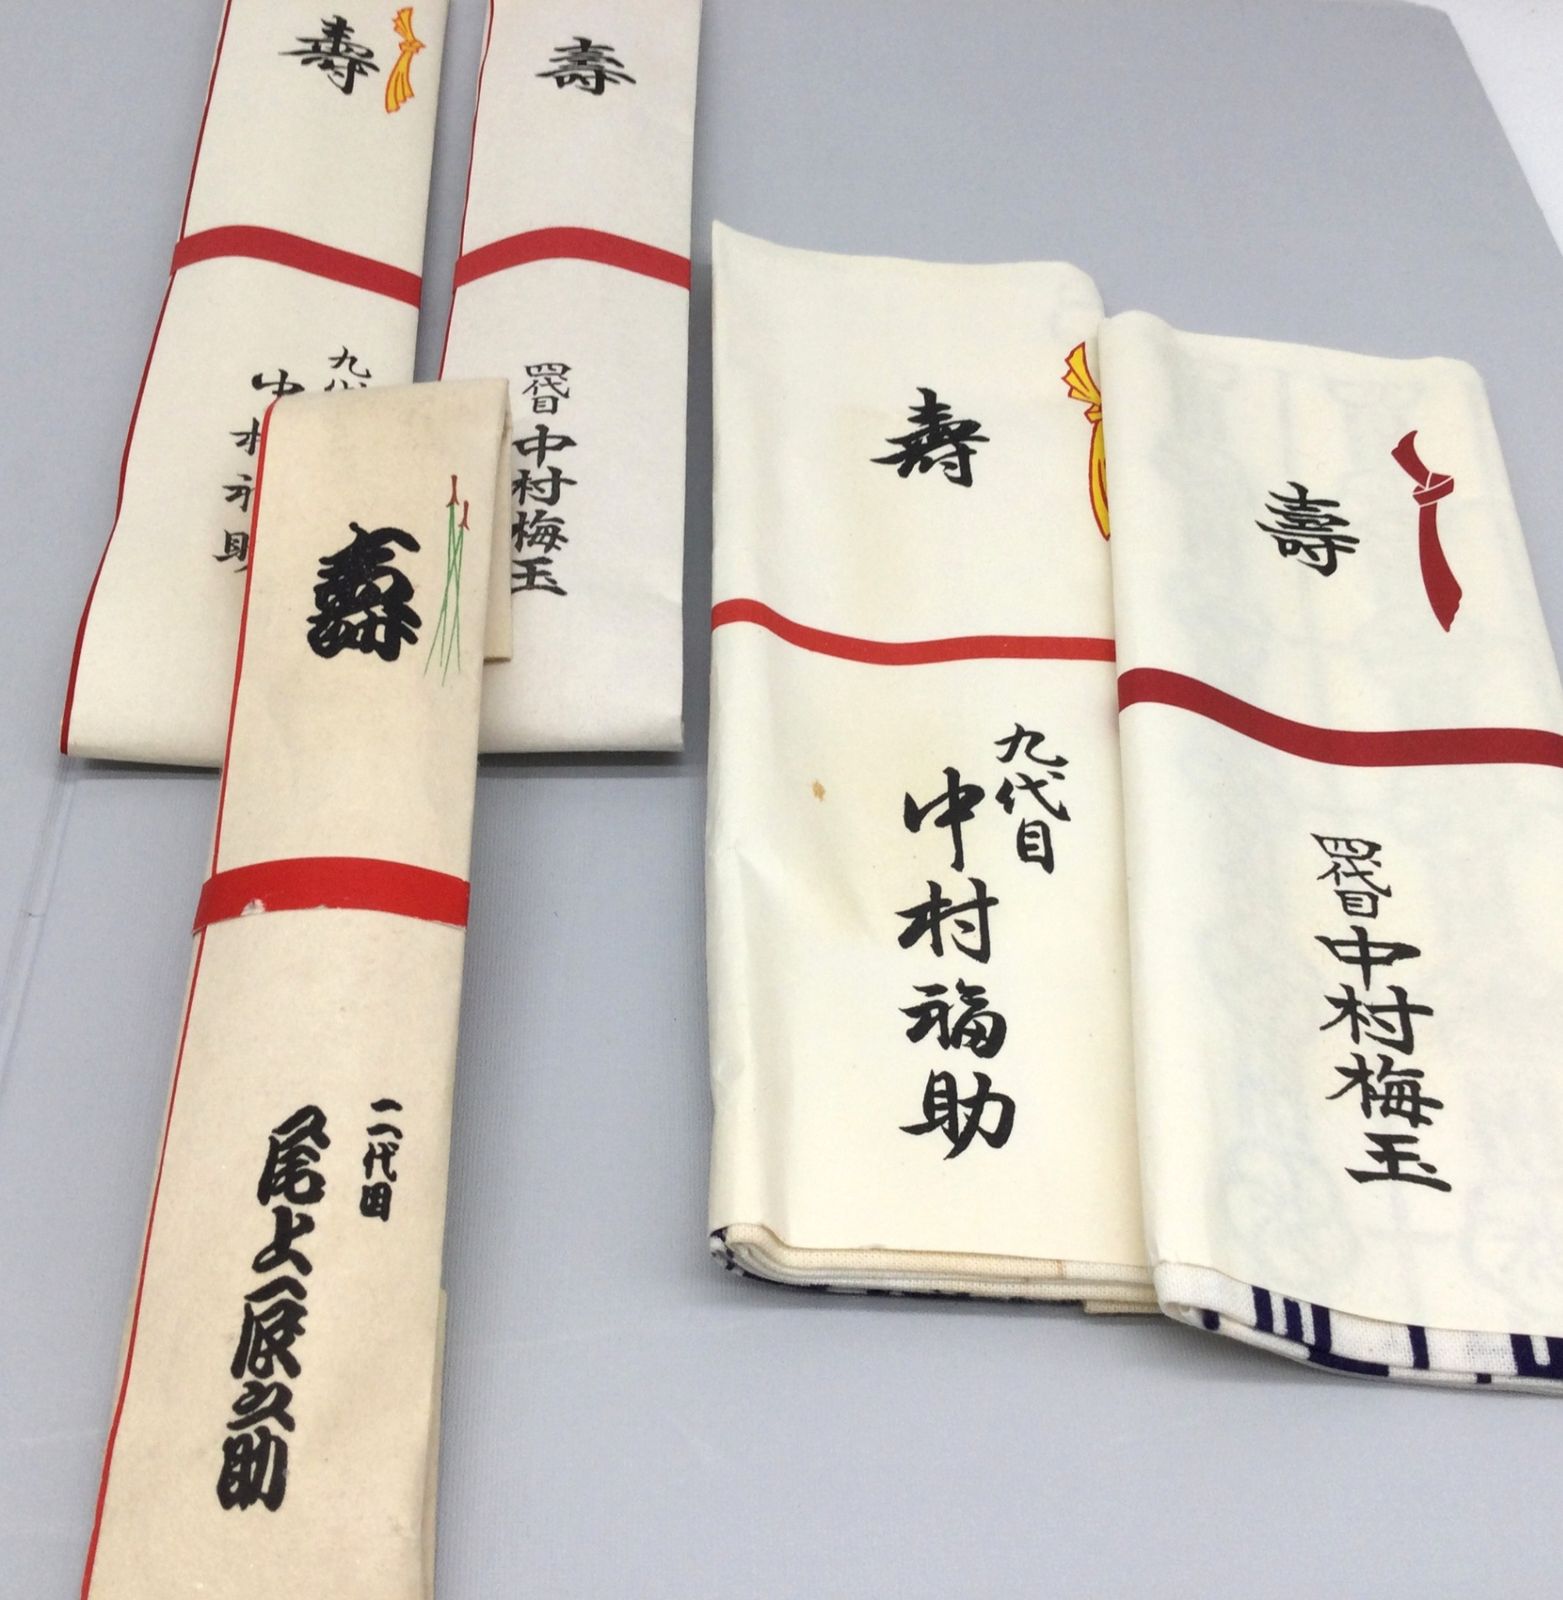 壽
九代
中村福助
壽
四代目
中村梅玉
壽
二代目
尾上辰之助
壽
九代目
中村福助
壽
四代目
中村梅玉